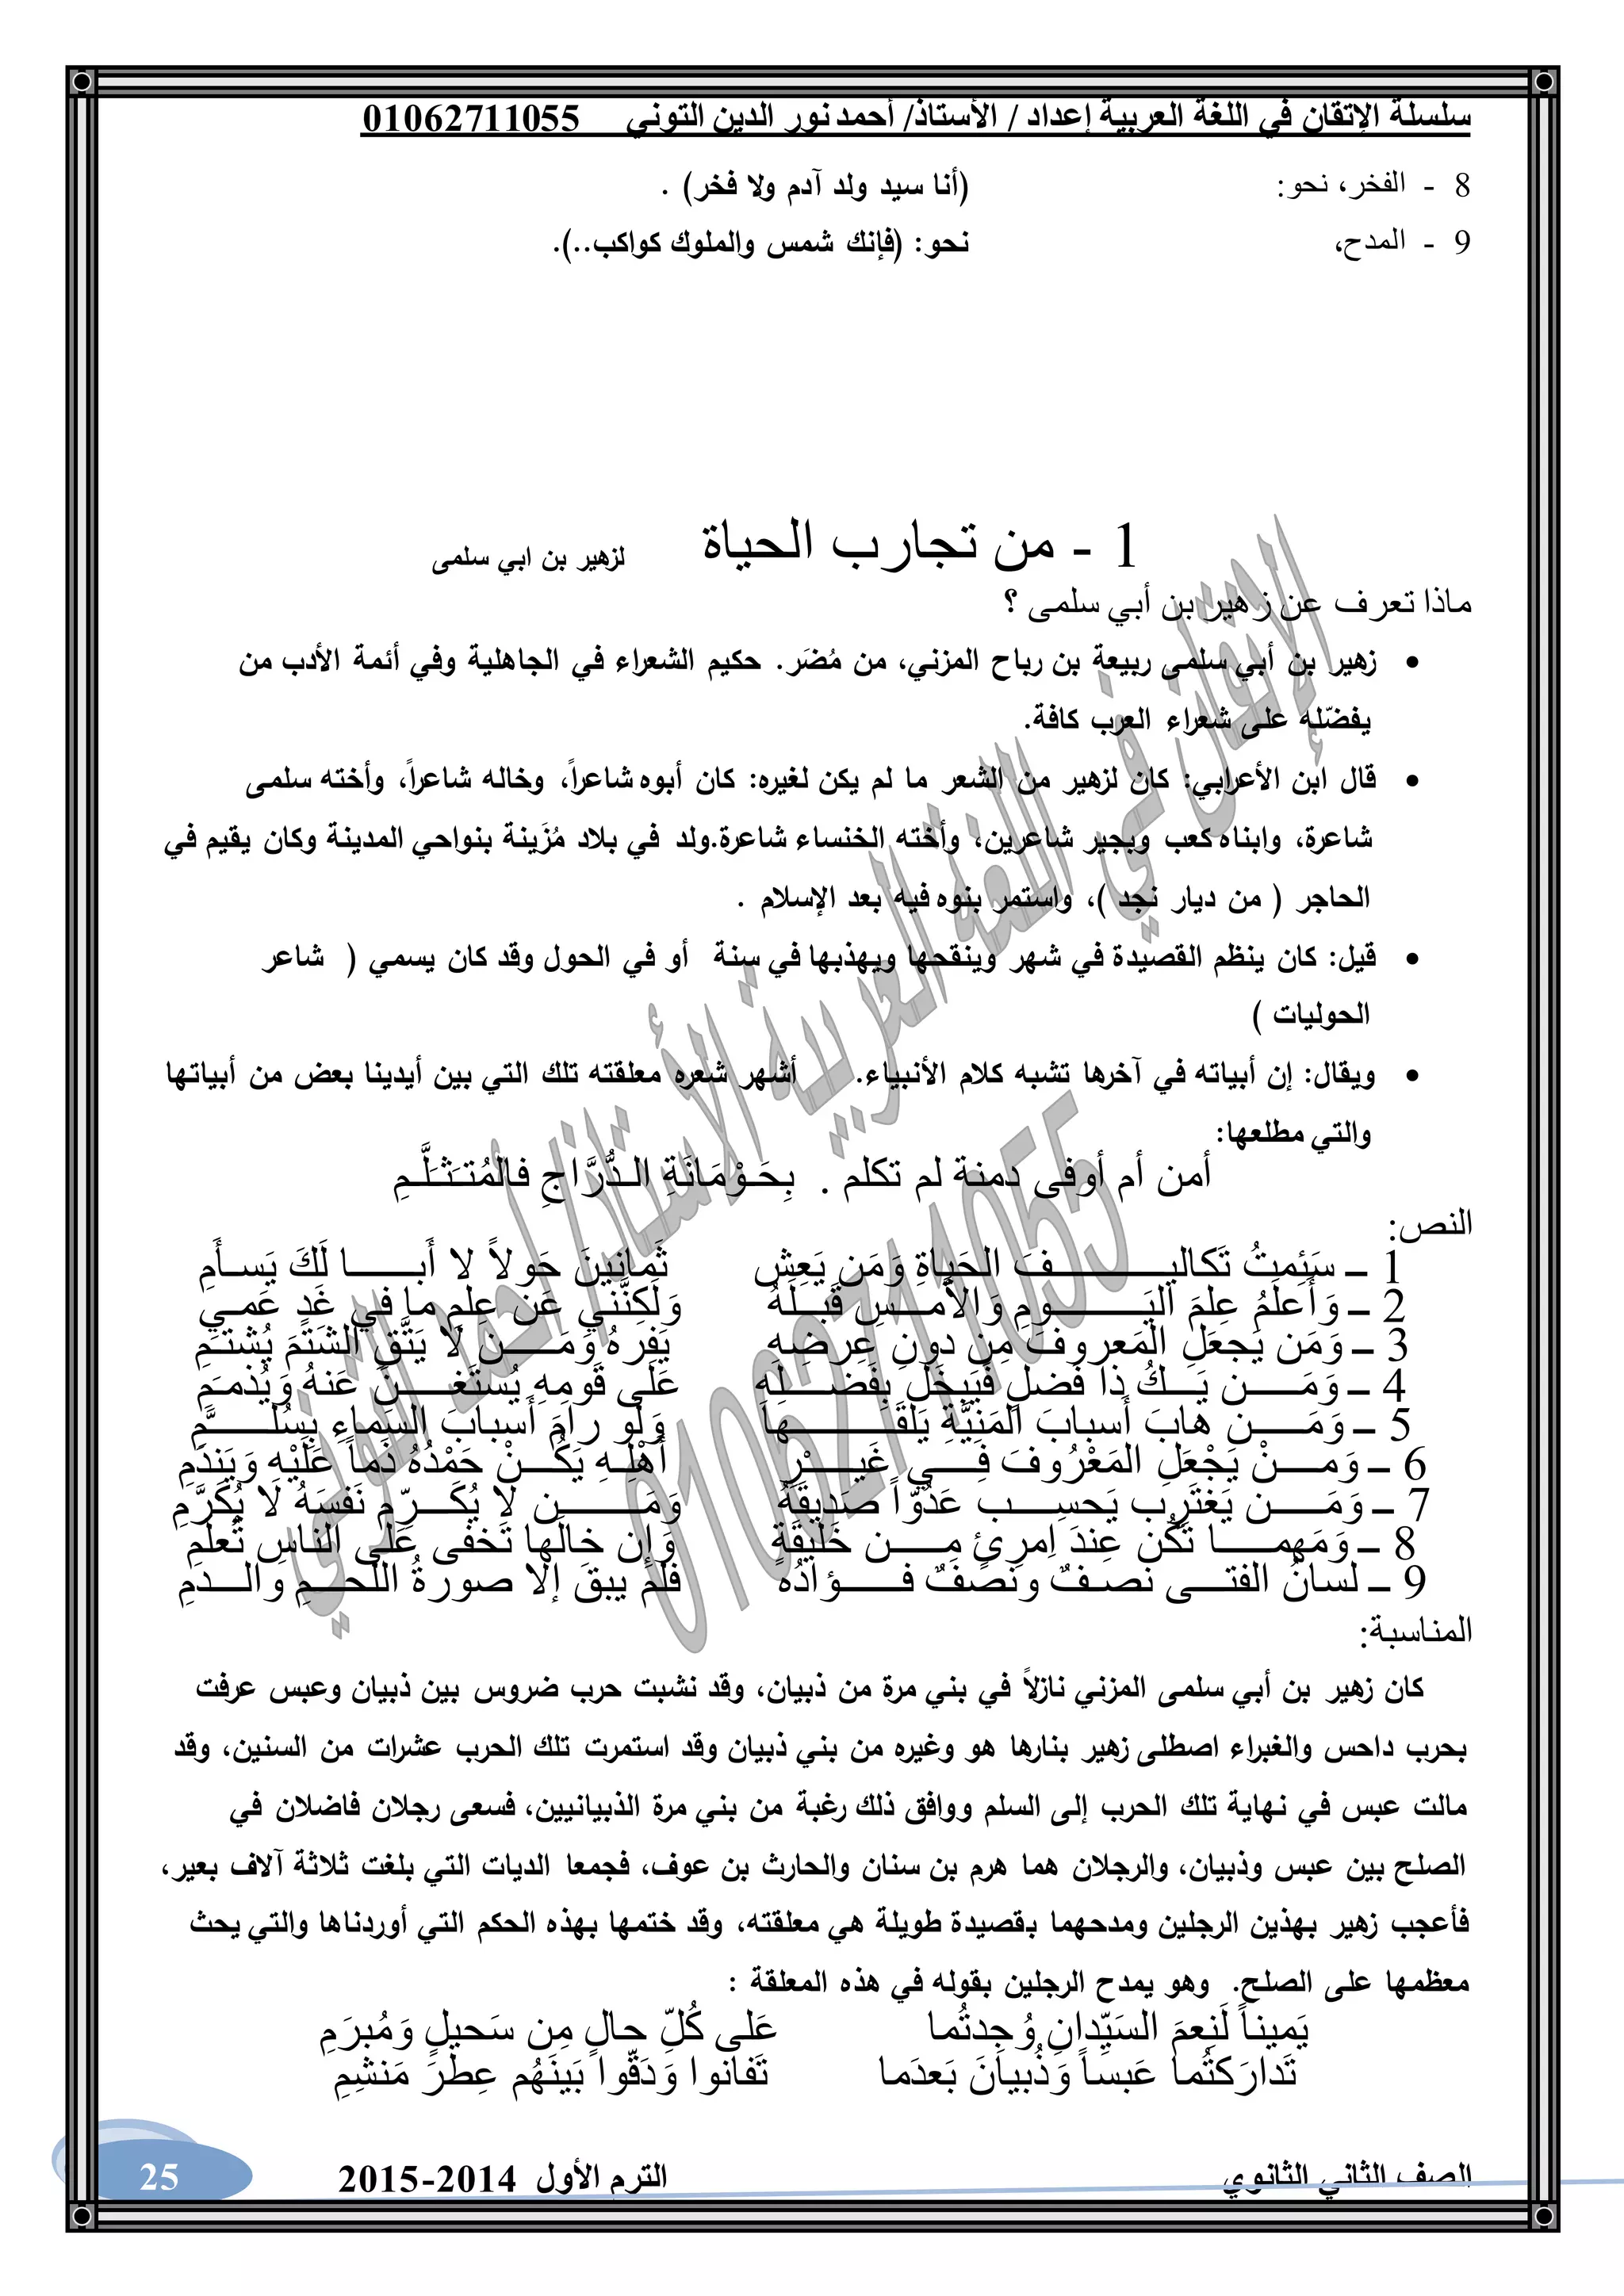 سلسلة الإتقان في اللغة العربية إعداد / الأستاذ/ أحمد نور الدين التوني 01062711055
8 - الفخر، نحو: (أنا سيد ولد آدم ولا فخر) .
9 - المدح، نحو: (فإنك شمس والملوك كواكب..).
1 - من تجارب الحياة لزهير بن ابي سلمى
ماذا تعرف عن زهير بن أبي سلمى ؟
• زهير بن أبي سلمى ربيعة بن رباح المزني، من مُضَر. حكيم الشعراء في الجاهلية وفي أئمة الأدب من
يفضّله على شعراء العرب كافة.
• قال ابن الأعرابي: كان لزهير من الشعر ما لم يكن لغيره: كان أبوه شاعراً، وخاله شاعراً، وأخته سلمى
شاعرة، وابناه كعب وبجير شاعرين، وأخته الخنساء شاعرة.ولد في بلاد مُزَينة بنواحي المدينة وكان يقيم في
الحاجر ( من ديار نجد )، واستمر بنوه فيه بعد الإسلام .
• قيل: كان ينظم القصيدة في شهر وينقحها ويهذبها في سنة أو في الحول وقد كان يسمي ( شاعر
الحوليات )
• ويقال: إن أبياته في آخرها تشبه كلام الأنبياء. أشهر شعره معلقته تلك التي بين أيدينا بعض من أبياتها
والتي مطلعها:
أمن أم أوفى دمنة لم تكلم . بِحَوْمَانَةِ الدُّرَّاجِ فالمُتَثَلَّمِ
النص:
1 – سَئِمتُ تَكاليفَ الحَياةِ وَمَن يَعِش ثَمانينَ حَولاً لا أَبا لَكَ يَسأَمِ
2 – وَأَعلَمُ عِلمَ اليَومِ وَالأَمسِ قَبلَهُ وَلَكِنَّني عَن عِلمِ ما في غَدٍ عَمي
3 – وَمَن يَجعَلِ المَعروفَ مِن دونِ عِرضِهِ يَفِرهُ وَمَن لا يَتَّقِ الشَتمَ يُشتَمِ
4 – وَمَن يَكُ ذا فَضلٍ فَيَبخَل بِفَضلِهِ عَلى قَومِهِ يُستَغنَ عَنهُ وَيُذمَمِ
5 – وَمَن هابَ أَسبابَ المَنِيَّةِ يَلقَها وَلَو رامَ أَسبابَ السَماءِ بِسُلَّمِ
6 – وَمَنْ يَجْعَلِ المَعْرُوفَ فِي غَيْرِ أَهْلِهِ يَكُنْ حَمْدُهُ ذَماً عَلَيْهِ وَيَندَمِ
7 – وَمَن يَغتَرِب يَحسِب عَدُوّاً صَديقَهُ وَمَن لا يُكَرِّم نَفسَهُ لا يُكَرَّمِ
8 – وَمَهما تَكُن عِندَ اِمرِئٍ مِن خَليقَةٍ وَإِن خالَها تَخفى عَلى الناسِ تُعلَمِ
9 – لسانُ الفتى نصفٌ ونصفٌ فؤادُه فلم يبقَ إلا صورةُ اللحمِ والدمِ
المناسبة:
كان زهير بن أبي سلمى المزني نازلاً في بني مرة من ذبيان، وقد نشبت حرب ضروس بين ذبيان وعبس عرفت
بحرب داحس والغبراء اصطلى زهير بنارها هو وغيره من بني ذبيان وقد استمرت تلك الحرب عشرات من السنين، وقد
مالت عبس في نهاية تلك الحرب إلى السلم ووافق ذلك رغبة من بني مرة الذبيانيين، فسعى رجلان فاضلان في
الصلح بين عبس وذبيان، والرجلان هما هرم بن سنان والحارث بن عوف، فجمعا الديات التي بلغت ثلاثة آلاف بعير،
فأعجب زهير بهذين الرجلين ومدحهما بقصيدة طويلة هي معلقته، وقد ختمها بهذه الحكم التي أوردناها والتي يحث
معظمها على الصلح. وهو يمدح الرجلين بقوله في هذه المعلقة :
يَميناً لَنِعمَ السَيِّدانِ وُجِدتُما عَلى كُلِّ حالٍ مِن سَحيلٍ وَمُبرَمِ
تَدارَكتُما عَبساً وَذُبيانَ بَعدَما تَفانوا وَدَقّوا بَينَهُم عِطرَ مَنشِمِ
الصف الثاني الثانوي الترم الأول 2014-2015 25
الإتقان في اللغة العربية الأستاذ/ أحمد التوني
01062711055